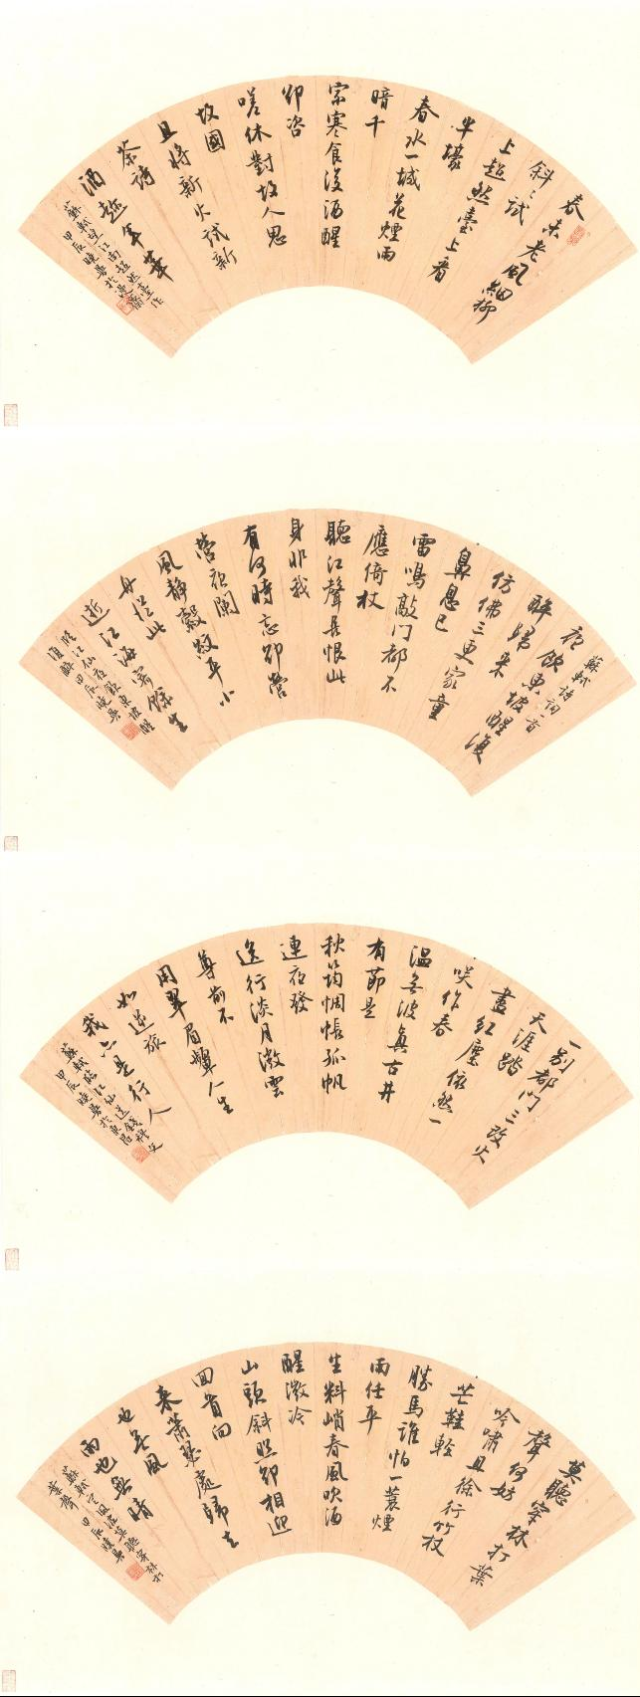 春未老風細柳
斜〻試
上超然臺上看
半壕
春水一城花煙雨
暗千
家寒食後酒醒
卻咨
嗟休對故人思
故國
且將新火試新
茶詩
酒趁年華
蘇軾望江南超然臺作
甲辰曉春於
蘇軾詩詞一首
夜飲東坡醒復
醉歸來
仿佛三更家童
鼻息已
雷鳴敲門都不
應倚杖
聽江聲長恨此
身非我
有何時忘卻營
營夜闌
風靜縠紋平小
舟從此
逝江海寄餘生
臨江仙夜飲東坡醒
復醉甲辰曉春
一別都門三改火
天涯踏
盡紅塵依然一
咲作春
溫無波真古井
有節是
秋筠惆悵孤帆
連夜發
送行淡月微雲
尊前不
用翠眉顰人生
如逆旅
我亦是行人
蘇軾臨江仙送錢穆父
甲辰曉春於東昌
莫聽穿林打葉
聲何妨
吟嘯且徐行竹杖
芒鞋輕
勝馬誰怕一蓑煙
雨任平
生料峭春風吹酒
醒微冷
山頭斜照卻相迎
回首向
來蕭瑟處歸去
也無風
雨也無晴
蘇軾定風波莫聽穿林打
葉聲甲辰曉春